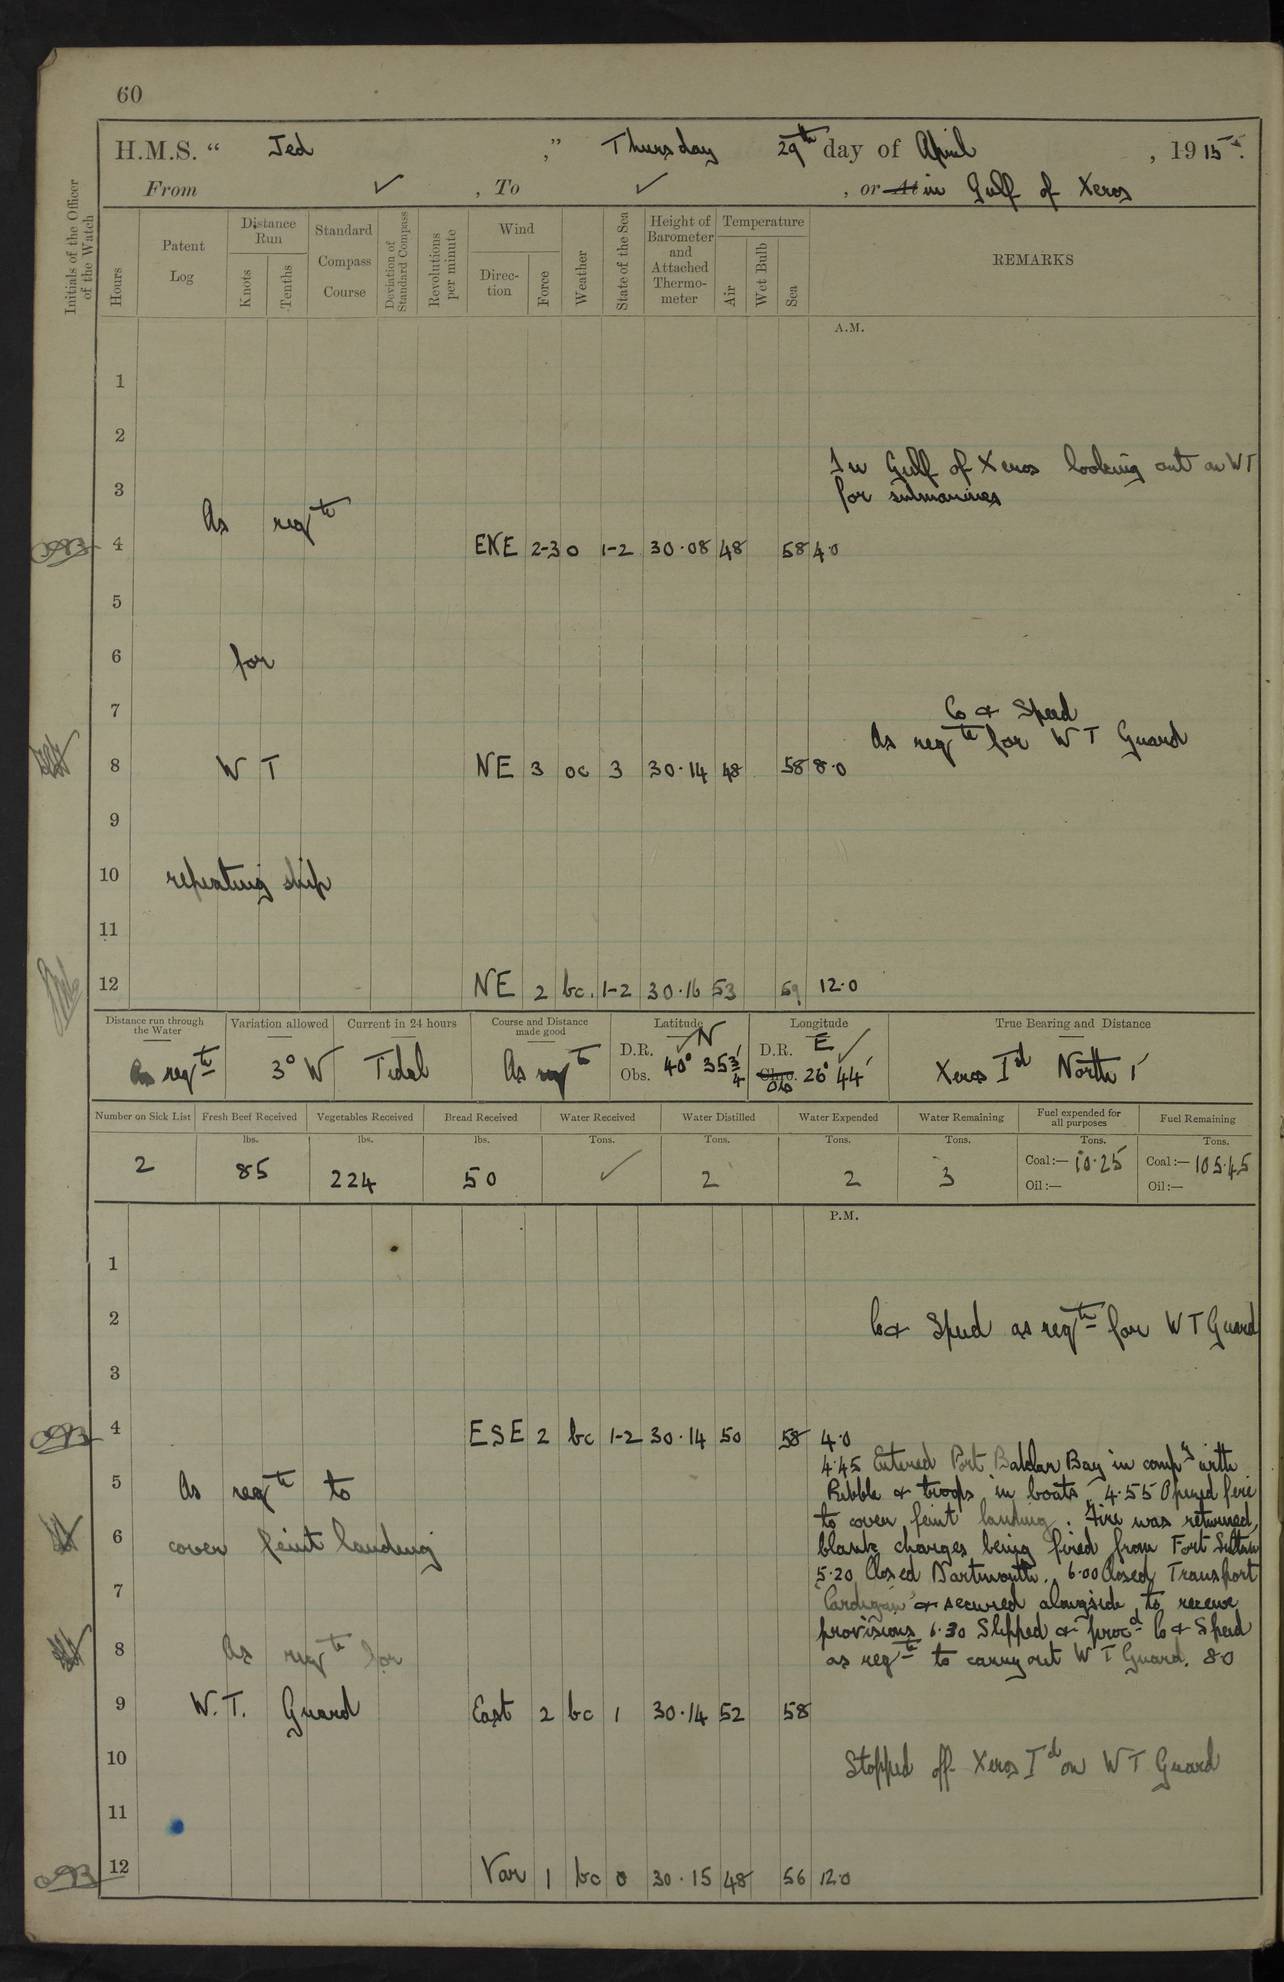 60
H.M.S. “ Jed ,” Thursday 29th day of April , 1915.
From ✓ , To ✓ , or At in Gulf of Xeros
Initials of the Officer of the Watch
Hours
Patent Log
Distance Run
Knots
Tenths
Standard Compass Course
Deviation of Standard Compass
Revolutions per minute
Wind
Direc-tion
Force
Weather
State of the Sea
Height of Barometer and Attached Thermo-meter
Temperature
Air
Wet Bulb
Sea
REMARKS
A.M.
1
2
In Gulf of Xeros looking out on WT
3
for submarines
As reqte
4 ENE 2-3 o 1-2 30.08 48 58 4.0
5
6 for
7
Co & Speed
As reqte for W T Guard
8 W T NE 3 oc 3 30.14 48 58 8.0
9
10 repeating ship
11
12 NE 2 bc. 1-2 30.16 53 59 12.0
Distance run through the Water
Variation allowed
Current in 24 hours
Course and Distance made good
Latitude N
Longitude E
True Bearing and Distance
As reqte
3° W
Tidal
As reqte
D.R. ✓
Obs. 40° 35 3/4'
D.R. ✓
Chro. Obs 26° 44'
Xeros Id North 1'
Number on Sick List
Fresh Beef Received
Vegetables Received
Bread Received
Water Received
Water Distilled
Water Expended
Water Remaining
Fuel expended for all purposes
Fuel Remaining
lbs. lbs. lbs. Tons. Tons. Tons. Tons. Tons. Tons.
2 85 224 50 ✓ 2 2 3 Coal:— 10.25 Coal:— 105.45
Oil:— Oil:—
P.M.
1
2 Co & Speed as reqte for W T Guard
3
4 ESE 2 bc 1-2 30.14 50 58 4.0
4.45 Entered Port Baklar Bay in compy with
5 As reqte to
Ribble & troops in boats 4.55 Opened fire
to cover feint landing. Fire was returned,
6 cover feint landing
blank charges being fired from Fort Sultan
5.20 Closed Dartmouth. 6.00 Closed Transport
7
"Cardigan" & secured alongside to receive
provisions 6.30 Slipped & procd Co & Speed
8 As reqte for
as reqte to carry out W T Guard. 8.0
9 W.T. Guard East 2 bc 1 30.14 52 58
10 Stopped off Xeros Id on W T Guard
11
12 Var 1 bc 0 30.15 48 56 12.0